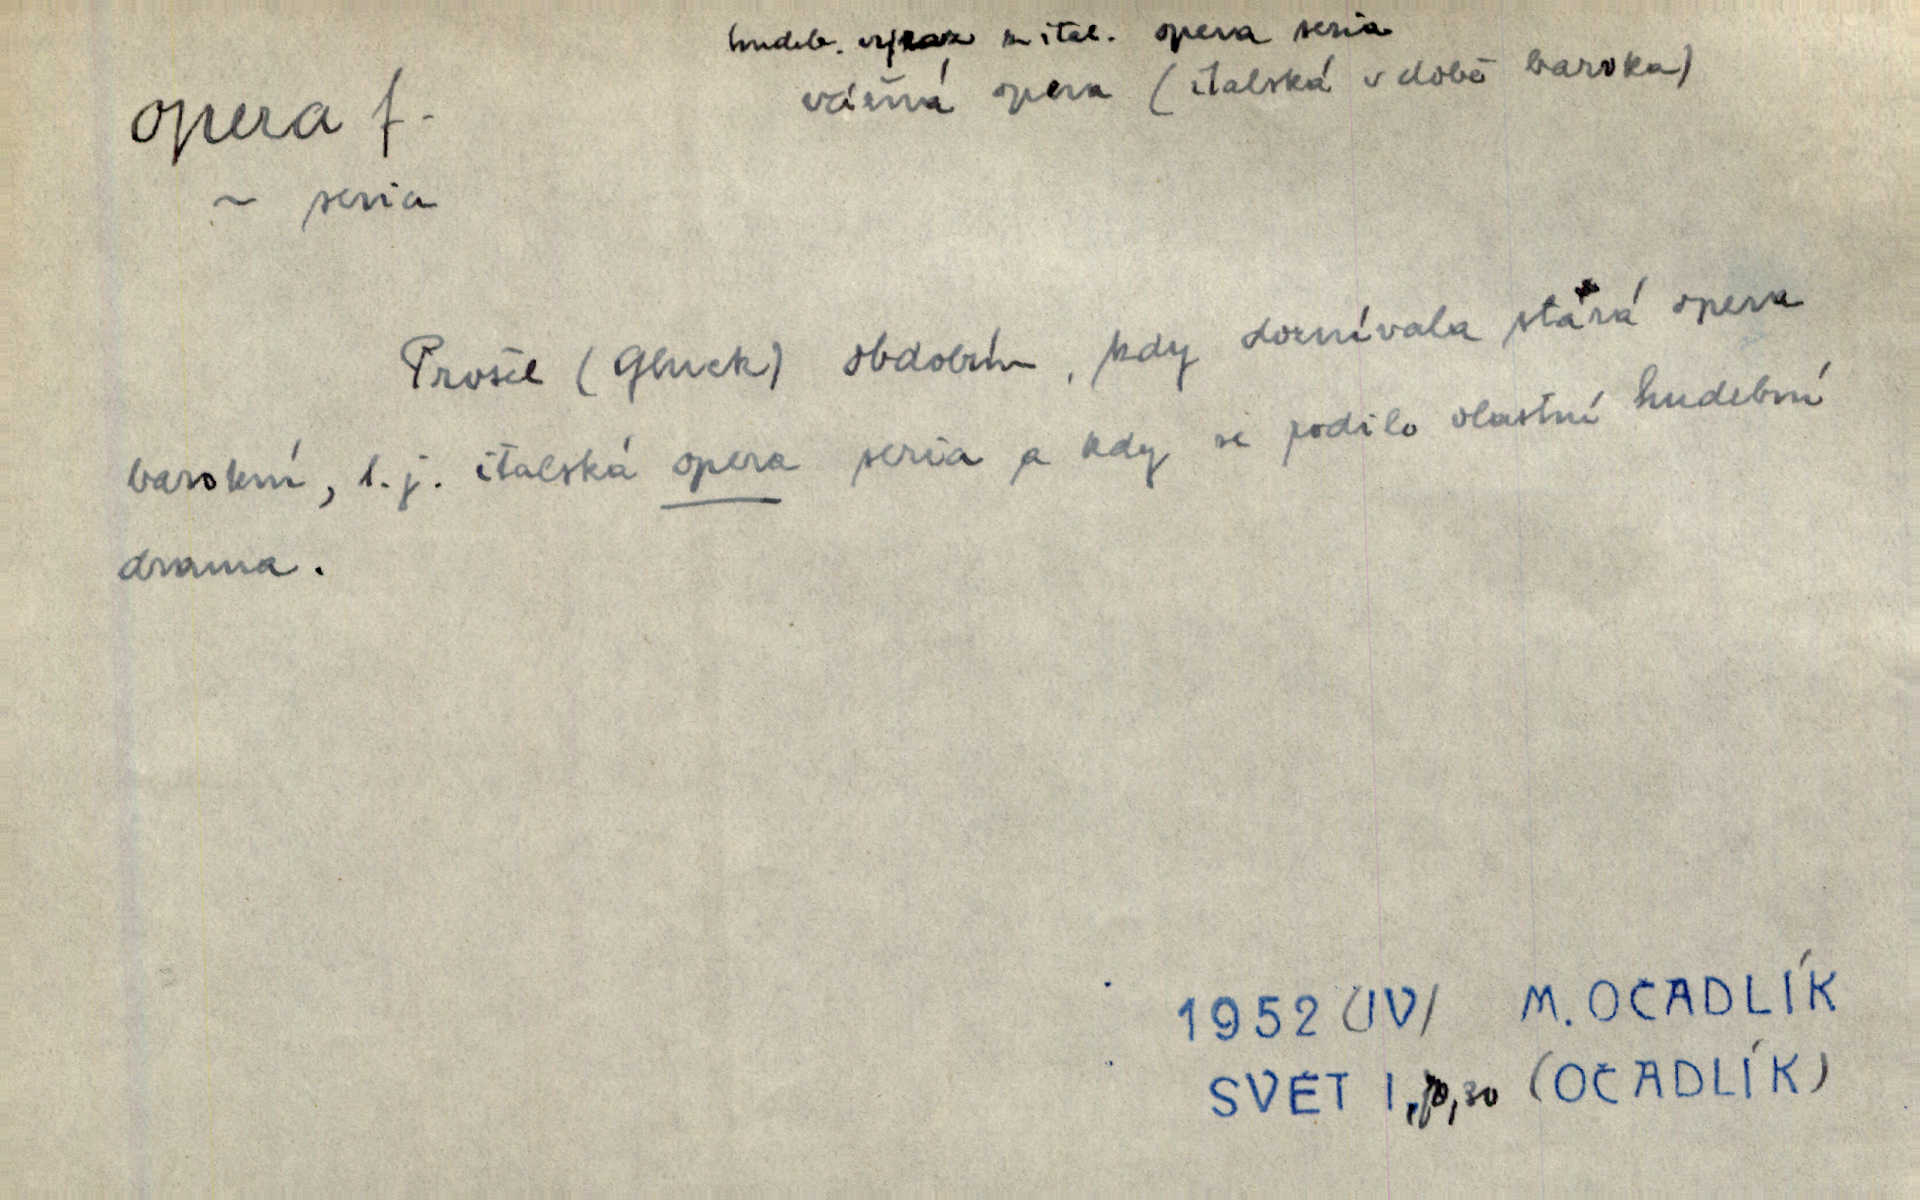 hudeb. výraz z ital. opera seria
vážná opera (italská v době baroka)
opera f.
~ seria
Prošel (Gluck) obdobím, kdy doznívala stará opera
barokní, t. j. italská opera seria a kdy se rodilo vlastní hudební
drama.
1952 (IV) M. OČADLÍK
SVĚT I, 30 (OČADLÍK)